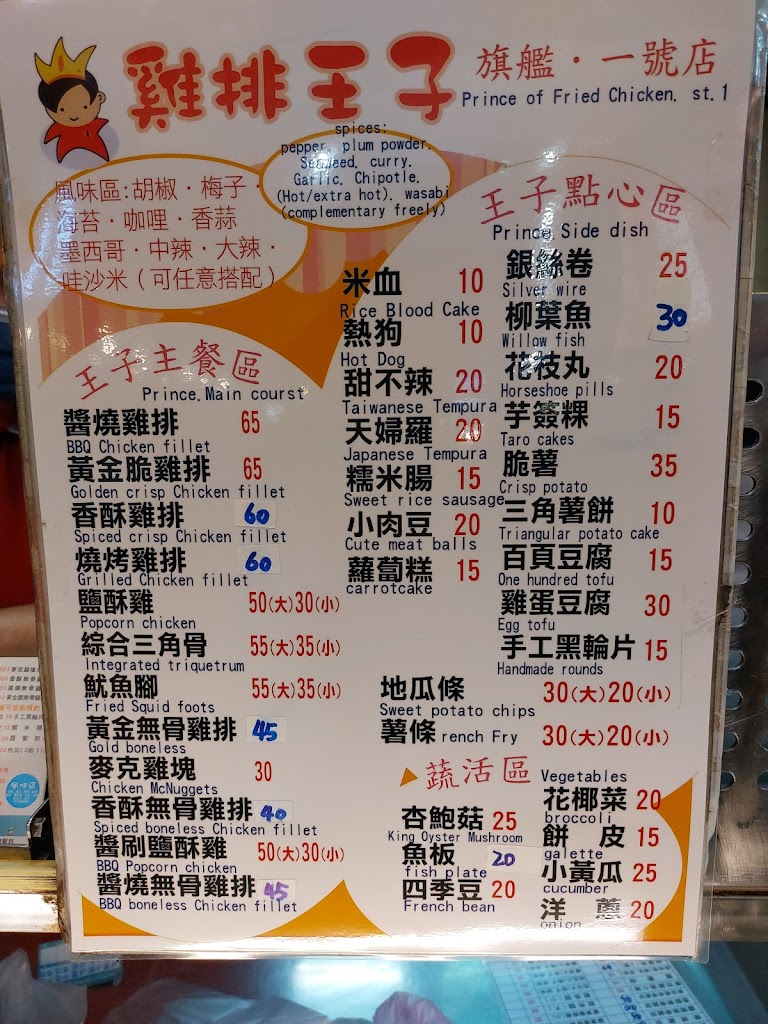 雞排王子
旗艦·一號店
Prince of Fried Chicken. st.1
spices:
pepper, plum powder,
Seaweed, curry.
Garlic. Chipotle.
(Hot/extra hot). wasabi
(complementary freely)
風味區:胡椒·梅子·
海苔·咖哩·香蒜
墨西哥·中辣·大辣·
哇沙米(可任意搭配)
王子主餐區
Prince.Main courst
醬燒雞排 65
BBQ Chicken fillet
黃金脆雞排 65
Golden crisp Chicken fillet
香酥雞排 60
Spiced crisp Chicken fillet
燒烤雞排 60
Grilled Chicken fillet
鹽酥雞 50(大)30(小)
Popcorn chicken
綜合三角骨 55(大)35(小)
Integrated triquetrum
魷魚腳 55(大)35(小)
Fried Squid foots
黃金無骨雞排 45
Gold boneless
麥克雞塊 30
Chicken McNuggets
香酥無骨雞排 40
Spiced boneless Chicken fillet
醬刷鹽酥雞 50(大)30(小)
BBQ Popcorn chicken
醬燒無骨雞排 45
BBQ boneless Chicken fillet
王子點心區
Prince.Side dish
米血 10
Rice Blood Cake
熱狗 10
Hot Dog
甜不辣 20
Taiwanese Tempura
天婦羅 20
Japanese Tempura
糯米腸 15
Sweet rice sausage
小肉豆 20
Cute meat balls
蘿蔔糕 15
carrotcake
銀絲卷 25
Silver wire
柳葉魚 30
Willow fish
花枝丸 20
Horseshoe pills
芋簽粿 15
Taro cakes
脆薯 35
Crisp potato
三角薯餅 10
Triangular potato cake
百頁豆腐 15
One hundred tofu
雞蛋豆腐 30
Egg tofu
手工黑輪片 15
Handmade rounds
地瓜條 30(大)20(小)
Sweet potato chips
薯條 rench Fry 30(大)20(小)
蔬活區 Vegetables
杏鮑菇 25
King Oyster Mushroom
魚板 20
fish plate
四季豆 20
French bean
花椰菜 20
broccoli
餅 皮 15
galette
小黃瓜 25
cucumber
洋 蔥 20
onion